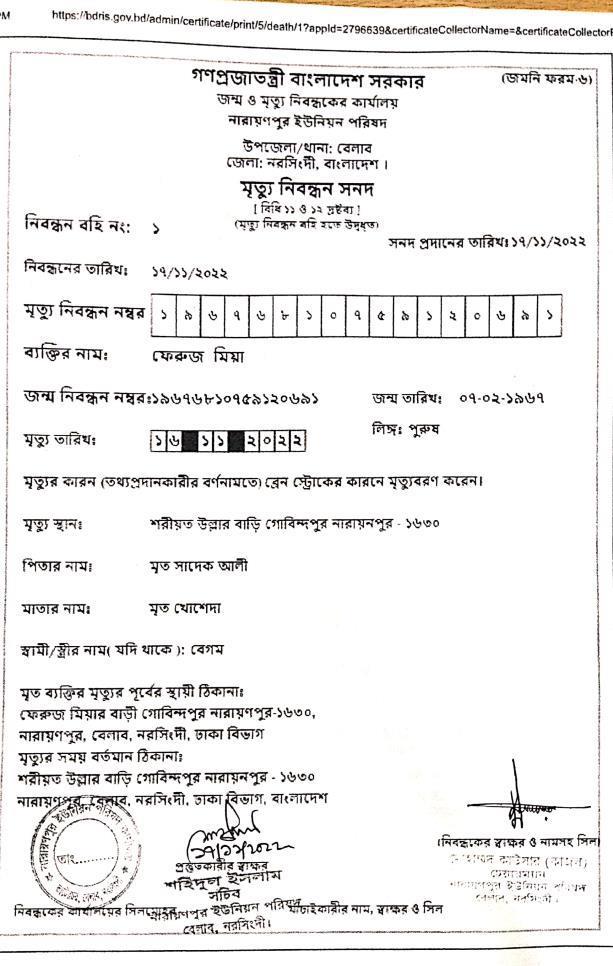 PM https://bdris.gov.bd/admin/certificate/print/5/death/1?appId=2796639&certificateCollectorName=&certificateCollector
গণপ্রজাতন্ত্রী বাংলাদেশ সরকার (জমনি ফরম-৬)
জন্ম ও মৃত্যু নিবন্ধকের কার্যালয়
নারায়ণপুর ইউনিয়ন পরিষদ
উপজেলা/থানা: বেলাব
জেলা: নরসিংদী, বাংলাদেশ ।
মৃত্যু নিবন্ধন সনদ
[ বিধি ১১ ও ১২ দ্রষ্টব্য ]
নিবন্ধন বহি নং: ১ (মৃত্যু নিবন্ধন বহি হতে উদ্ধৃত)
সনদ প্রদানের তারিখঃ ১৭/১১/২০২২
নিবন্ধনের তারিখঃ ১৭/১১/২০২২
মৃত্যু নিবন্ধন নম্বর ১ ৯ ৬ ৭ ৬ ৮ ১ ০ ৭ ৫ ৯ ১ ২ ০ ৬ ৯ ১
ব্যক্তির নাম: ফেরুজ মিয়া
জন্ম নিবন্ধন নম্বরঃ১৯৬৭৬৮১০৭৫৯১২০৬৯১ জন্ম তারিখঃ ০৭-০২-১৯৬৭
মৃত্যু তারিখঃ ১৬ ১১ ২০২২ লিঙ্গঃ পুরুষ
মৃত্যুর কারন (তথ্যপ্রদানকারীর বর্ণনামতে) ব্রেন স্ট্রোকের কারনে মৃত্যুবরণ করেন।
মৃত্যু স্থানঃ শরীয়ত উল্লার বাড়ি গোবিন্দপুর নারায়নপুর - ১৬৩০
পিতার নামঃ মৃত সাদেক আলী
মাতার নামঃ মৃত খোশেদা
স্বামী/স্ত্রীর নাম( যদি থাকে ): বেগম
মৃত ব্যক্তির মৃত্যুর পূর্বের স্থায়ী ঠিকানাঃ
ফেরুজ মিয়ার বাড়ী গোবিন্দপুর নারায়ণপুর-১৬৩০,
নারায়ণপুর, বেলাব, নরসিংদী, ঢাকা বিভাগ
মৃত্যুর সময় বর্তমান ঠিকানা:
শরীয়ত উল্লার বাড়ি গোবিন্দপুর নারায়নপুর - ১৬৩০
নারায়ণপুর, বেলাব, নরসিংদী, ঢাকা বিভাগ, বাংলাদেশ
তাং
প্রস্তুতকারীর স্বাক্ষর
(নিবন্ধকের স্বাক্ষর ও নামসহ সিল)
শহিদুল ইসলাম
সচিব
চেয়ারম্যান
নারায়ণপুর ইউনিয়ন পরিষদ
নিবন্ধকের কার্যালয়ের সিলমোহর নারায়ণপুর ইউনিয়ন পরিষদ যাচাইকারীর নাম, স্বাক্ষর ও সিল
বেলাব, নরসিংদী।
বেলাব, নরসিংদী।